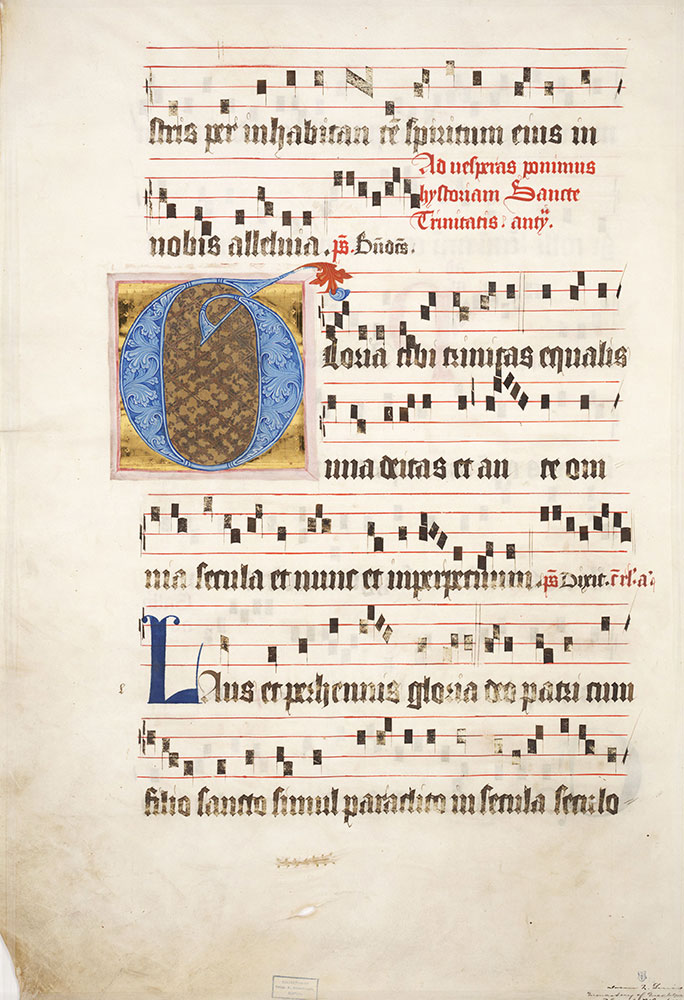 stris per inhabitan tē spiritum eius in
Ad uesperas ponimus
hystoriam Sancte
Trinitatis. anty̅.
nobis alleluia. p̅s̅.
Gloria tibi trinitas equalis
una deitas et an te om
nia secula et nunc et inperpetuum. p̅s̅ Dixit.
Laus et perhennis gloria deo patri cum
filio sancto simul paraclito in secula seculo